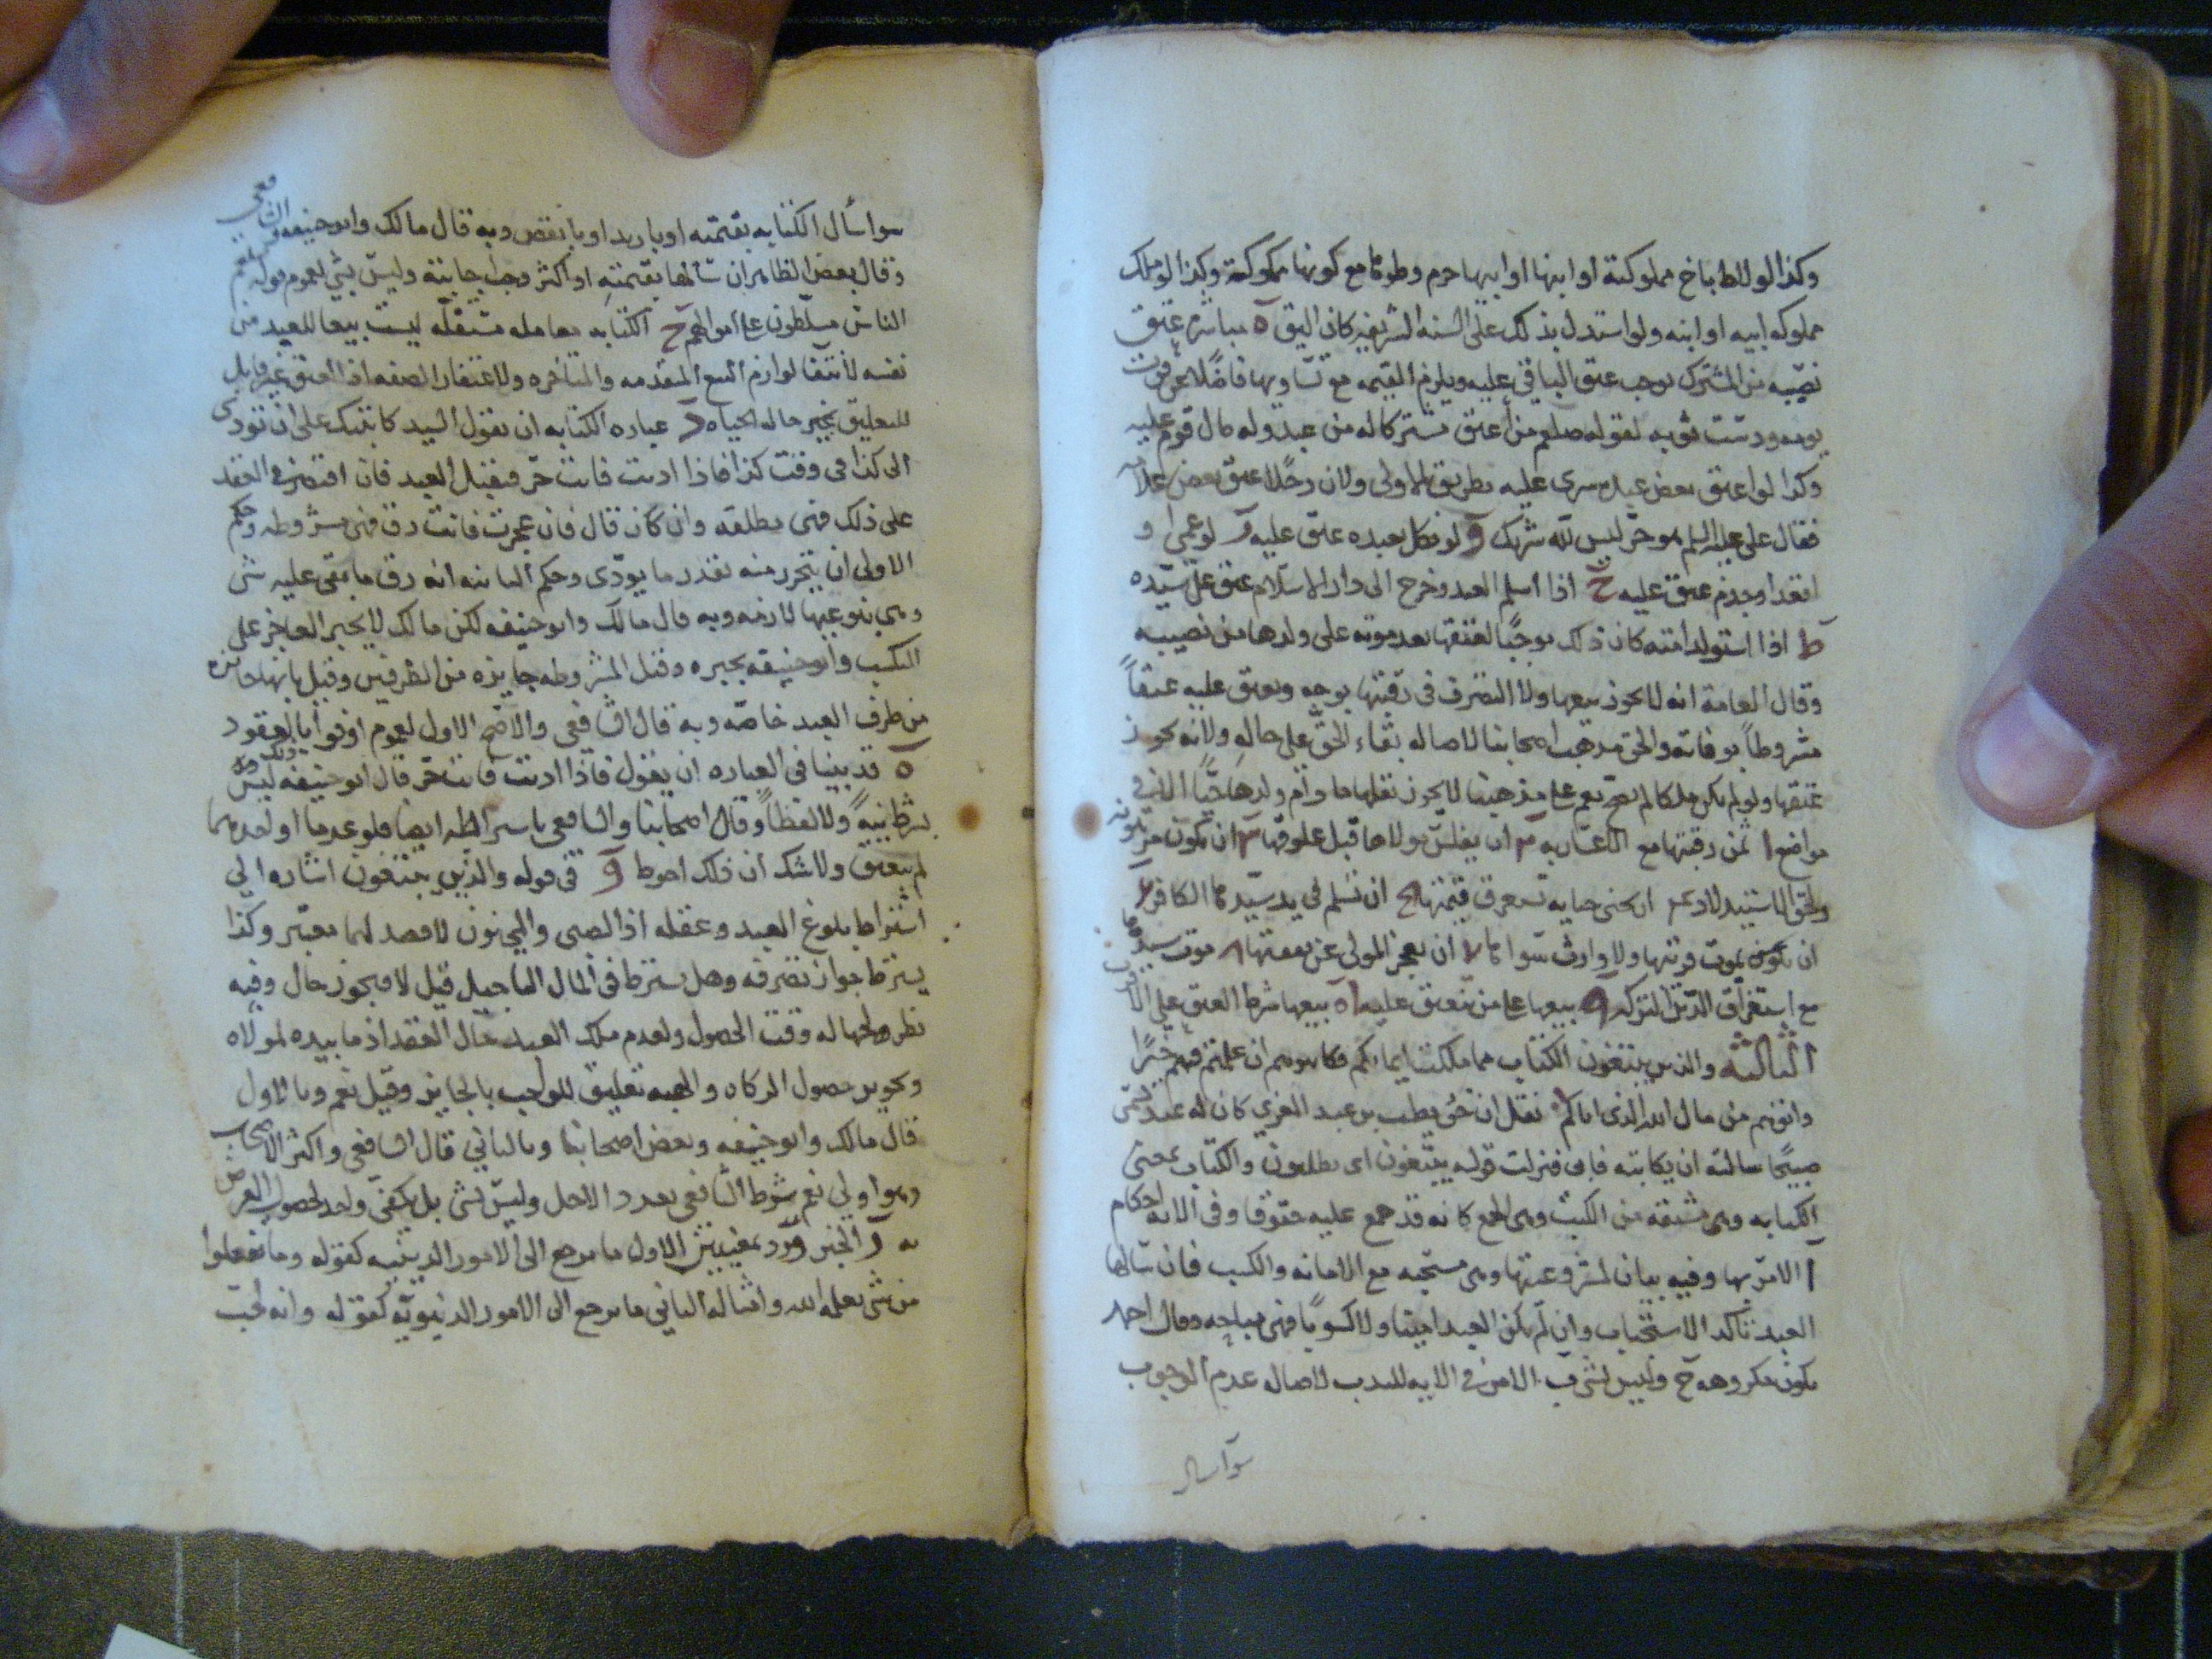 وكذا لو للطباخ مملوكته او ابنها او ابيها حرم وطوها مع كونها مملوكته وكذا لو ملك
مملوكه ابيه او ابنه ولو استدل بذلك على السنه الشريفه كان اليق ه مباشره عتق
نصيبه من المشترك يوجب عتق الباقي عليه ويلزم القيمه مع تساويها فاضلا عن قوت
يومه ودست ثوبه لقوله صلعم من اعتق مشتركا له من عبد وله مال قوم عليه
وكذا لو اعتق بعض عبده سرى عليه بطريق الاولى ولان رجلا عتق بعض غلامه
فقال على عليه السلم هو حر ليس لله شريك و لو نكل بعبده عتق عليه ز لو عمى او
اقعد او جذم عتق عليه ح اذا اسلم العبد وخرج الى دار الاسلام عتق على سيده
ط اذا استولد امته كان ذلك موجبا لعتقها بعد موته على ولدها من نصيبه
وقال العامة انه لا يجوز بيعها ولا التصرف في رقبتها بوجه وتعتق عليه عتقا
مشروطا بوفاته والحق مذهب اصحابنا لاصاله بقاء الحق على حاله ولانه يجوز
عتقها ولو لم يكن ملكا لم يصح نعم على مذهبنا لا يجوز نقلها ما دام ولدها حيا الا في
مواضع ا ثمن رقبتها مع اعساره به ان يفلس مولاها قبل علوقها ان تكون مرهونه
ان تجنى جنايه تستغرق قيمتها ان تسلم في يد سيدها الكافر
ان يموت قريبها ولا وارث سواها ان يعجز المولى عن نفقتها موت سيدها
مع استغراق الدين التركه بيعها على من تنعتق عليه بيعها شرط العتق على الاقرب
الثالثه والذين يبتغون الكتاب مما ملكت ايمانكم فكاتبوهم ان علمتم فيهم خيرا
واتوهم من مال الله الذى اتاكم نقل ان حويطب بن عبد العزى كان له عبد يسمى
صبيحا ساله ان يكاتبه فابى فنزلت قوله يبتغون اى يطلبون والكتاب بمعنى
الكتابه وهى مشتقه من الكتب وهى الجمع كانه قد جمع عليه حقوقا وفى الايه احكام
ا الامر بها وفيه بيان لمشروعيتها وهى مستحبه مع الامانه والكسب فان سالها
العبد تاكد الاستحباب وان لم يكن العبد امينا ولا كسوبا فهى مباحه وقال احمد
يكون مكروهه ح وليس بشئ ب الامر في الايه للندب لاصاله عدم الوجوب
سوا سال
سوا سأل الكتابه بقيمته او بازيد او بانقص وبه قال مالك وابو حنيفه والشافعى
وقال بعض الظاهر ان سألها بقيمته او اكثر وجب اجابته وليس بشئ لعموم قوله صلعم
الناس مسلطون على اموالهم ج الكتابه معامله مستقله ليست بيعا للعبد من
نفسه لانتفا لوازم البيع المتقدمه والمتاخره ولا عتقا بالصفه اذ العتق غير قابل
للتعليق بغير حاله الحياه د عباره الكتابه ان يقول السيد كاتبتك على ان تؤدى
الى كذا فى وقت كذا فاذا اديت فانت حر فيقبل العبد فان اقتصر في العقد
على ذلك فهى مطلقه وان كان قال فان عجزت فانت رق فهى مشروطه وحكم
الاولى ان يتحرر منه بقدر ما يؤدى وحكم الثانيه انه رق ما بقى عليه شى
وهى بنوعيها لازمه وبه قال مالك وابو حنيفه لكن مالك لا يجبر العاجز على
الكسب وابو حنيفه يجبره وقيل المشروطه جايزه من الطرفين وقيل بانها جائزه
من طرف العبد خاصه وبه قال الشافعى والاصح الاول لعموم اوفوا بالعقود
ه قد بينا فى العباره ان يقول فاذا اديت فانت حر قال ابو حنيفه ليس ذلك
بشرط نيةً ولا لفظاً وقال اصحابنا والشافعى باشتراطه ايضا فلو عدما او احدهما
لم ينعتق ولا شك ان ذلك احوط و فى قوله والذين يبتغون اشاره الى
اشتراط بلوغ العبد وعقله اذ الصبى والمجنون لا قصد لهما معتبر وكذا
يشترط جواز تصرفه وهل يشترط فى المال التاجيل قيل لا فيجوز حال وفيه
نظر لجهاله وقت الحصول ولعدم ملك العبد حال العقد اذ ما بيده لمولاه
وتجويز حصول الزكاه والهبه تعليق للواجب بالجايز وقيل نعم وبالاول
قال مالك وابو حنيفه وبعض اصحابنا وبالثانى قال الشافعى واكثر الاصحاب
وهو اولى نعم شرط الشافعى تعدد الاجل وليس بشى بل يكفى واحد لحصول الغرض
به ز الخير ورد بمعنيين الاول ما يرجع الى الامور الدينيه كقوله وما تفعلوا
من خير يعلمه الله وامثاله الثانى ما يرجع الى الامور الدنيويه كقوله وانه لحب